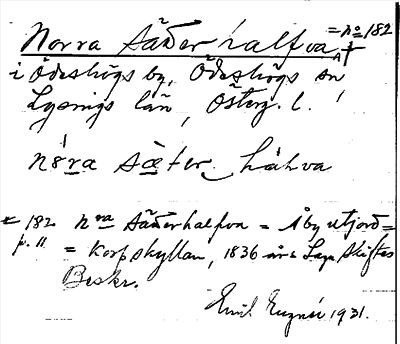 Norra Säderhalfva, = No 182
i Ödeshögs by, Ödeshögs sn
Lysings län, Österg. l.
nór̲ra sæ̲ter hàhva
182 Nra Säderhalfva = Åby utjord =
p. 11 = Korpskyllan, 1836 års Laga Skiftes
Beskr.
Emil 1931.